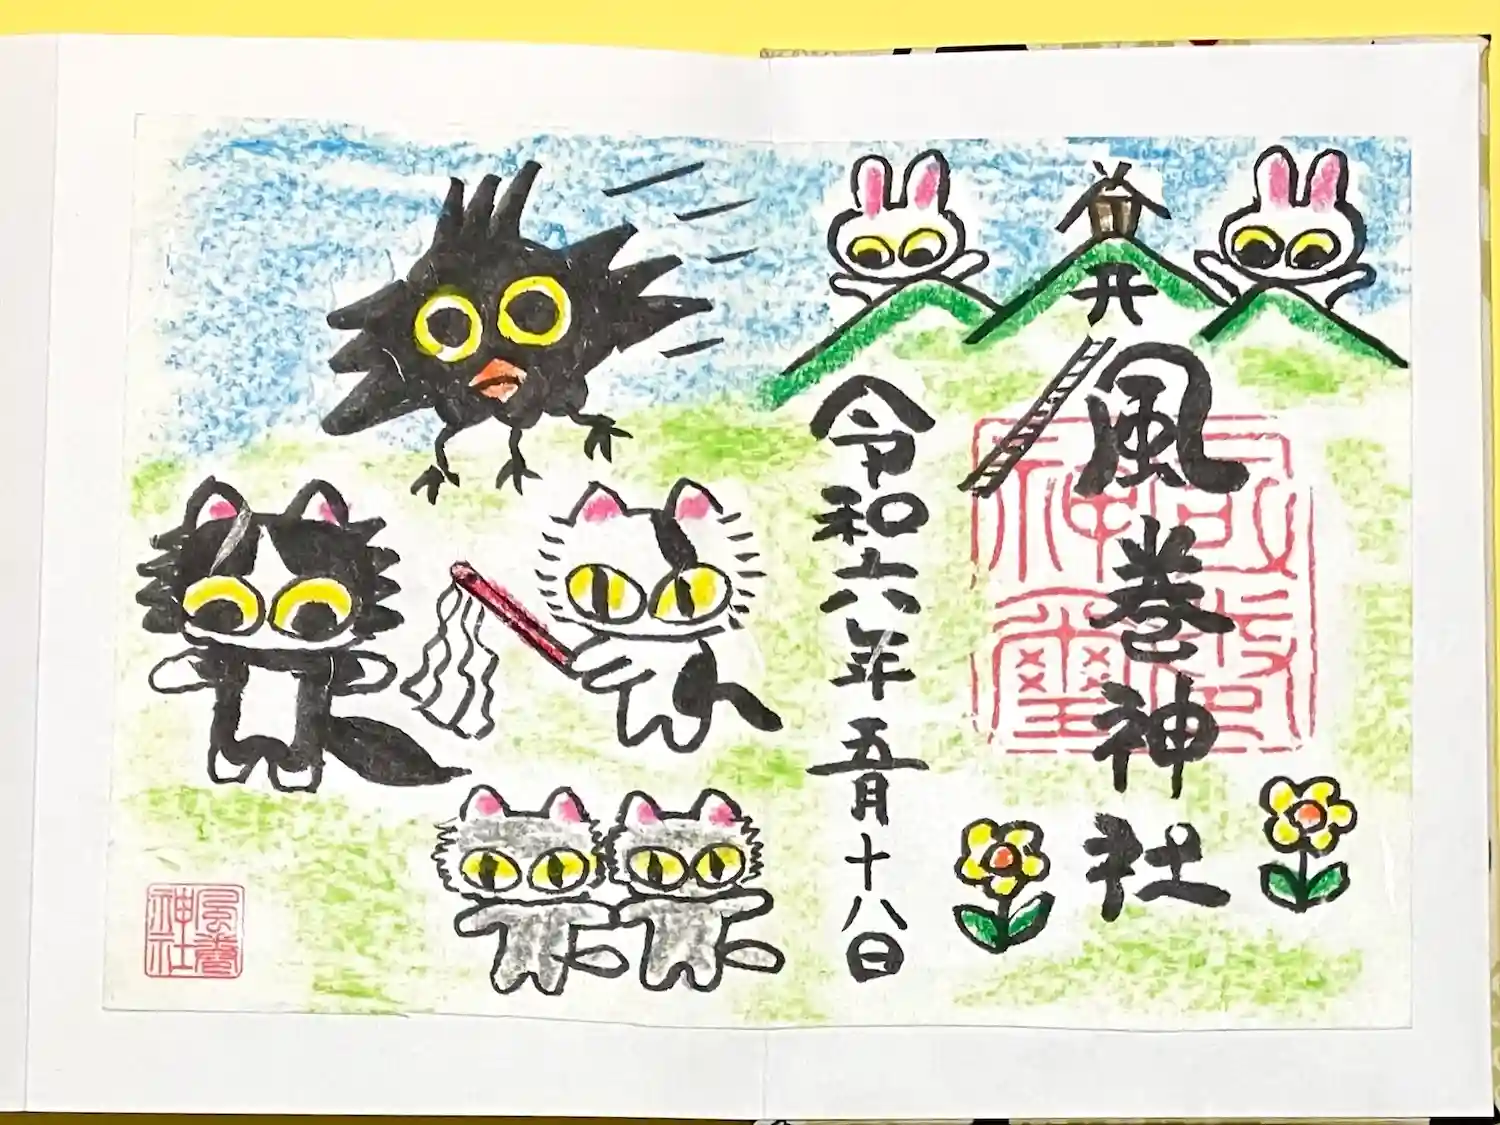 風巻神社
令和六年五月十八日
風巻
神社